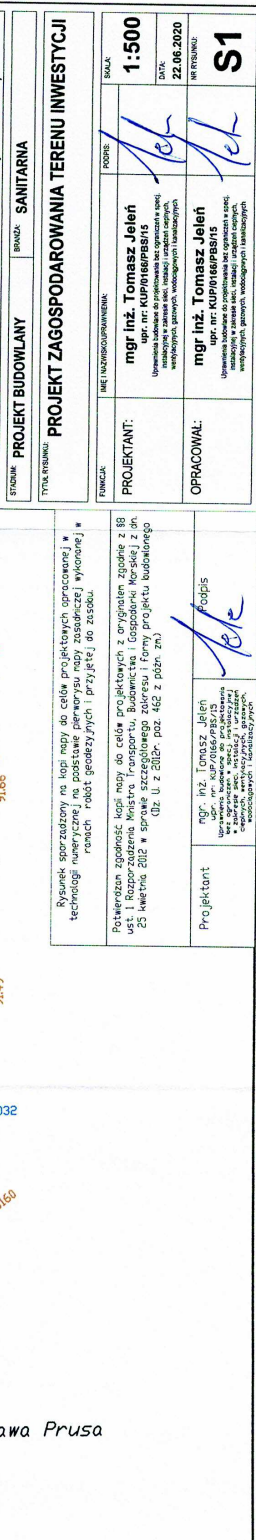 STADIUM: PROJEKT BUDOWLANY
BRANŻA: SANITARNA
TYTUŁ RYSUNKU:
PROJEKT ZAGOSPODAROWANIA TERENU INWESTYCJI
FUNKCJA:
IMIĘ I NAZWISKO/UPRAWNIENIA:
PODPIS:
SKALA:
1:500
PROJEKTANT:
mgr inż. Tomasz Jeleń
upr. nr: KUP/0166/PBS/15
Uprawnienia budowlane do projektowania bez ograniczeń w specj.
instalacyjnej w zakresie sieci, instalacji i urządzeń cieplnych,
wentylacyjnych, gazowych, wodociągowych i kanalizacyjnych
DATA:
22.06.2020
OPRACOWAŁ:
mgr inż. Tomasz Jeleń
upr. nr: KUP/0166/PBS/15
Uprawnienia budowlane do projektowania bez ograniczeń w specj.
instalacyjnej w zakresie sieci, instalacji i urządzeń cieplnych,
wentylacyjnych, gazowych, wodociągowych i kanalizacyjnych
NR RYSUNKU:
S1
Rysunek sporządzony na kopi mapy do celów projektowych opracowanej w
technologii numerycznej na podstawie pierworysu mapy zasadniczej wykonanej w
ramach robót geodezyjnych i przyjętej do zasobu.
Potwierdzam zgodność kopi mapy do celów projektowych z oryginałem zgodnie z §8
ust. 1 Rozporządzenia Ministra Transportu, Budownictwa i Gospodarki Morskiej z dn.
25 kwietnia 2012 w sprawie szczegółowego zakresu i formy projektu budowlanego
(Dz. U. z 2012r. poz. 462 z późn. zm.)
Projektant
mgr. inż. Tomasz Jeleń
upr. nr: KUP/0166/PBS/15
Uprawnienia budowlane do projektowania
bez ograniczeń w specj. instalacyjnej
w zakresie sieci, instalacji i urządzeń
cieplnych, wentylacyjnych, gazowych,
wodociągowych i kanalizacyjnych
Podpis
91.66
032
160
awa Prusa